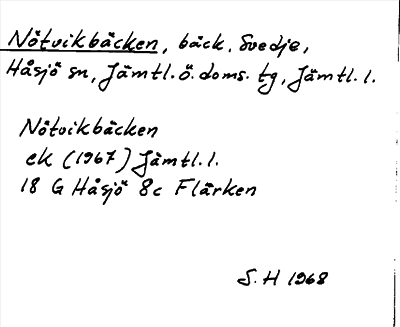 Nötvikbäcken, bäck, Svedje,
Håsjö sn, Jämtl. ö. doms. tg, Jämtl. l.
Nötvikbäcken
ek (1967) Jämtl. l.
18 G Håsjö 8c Flärken
S. H 1968